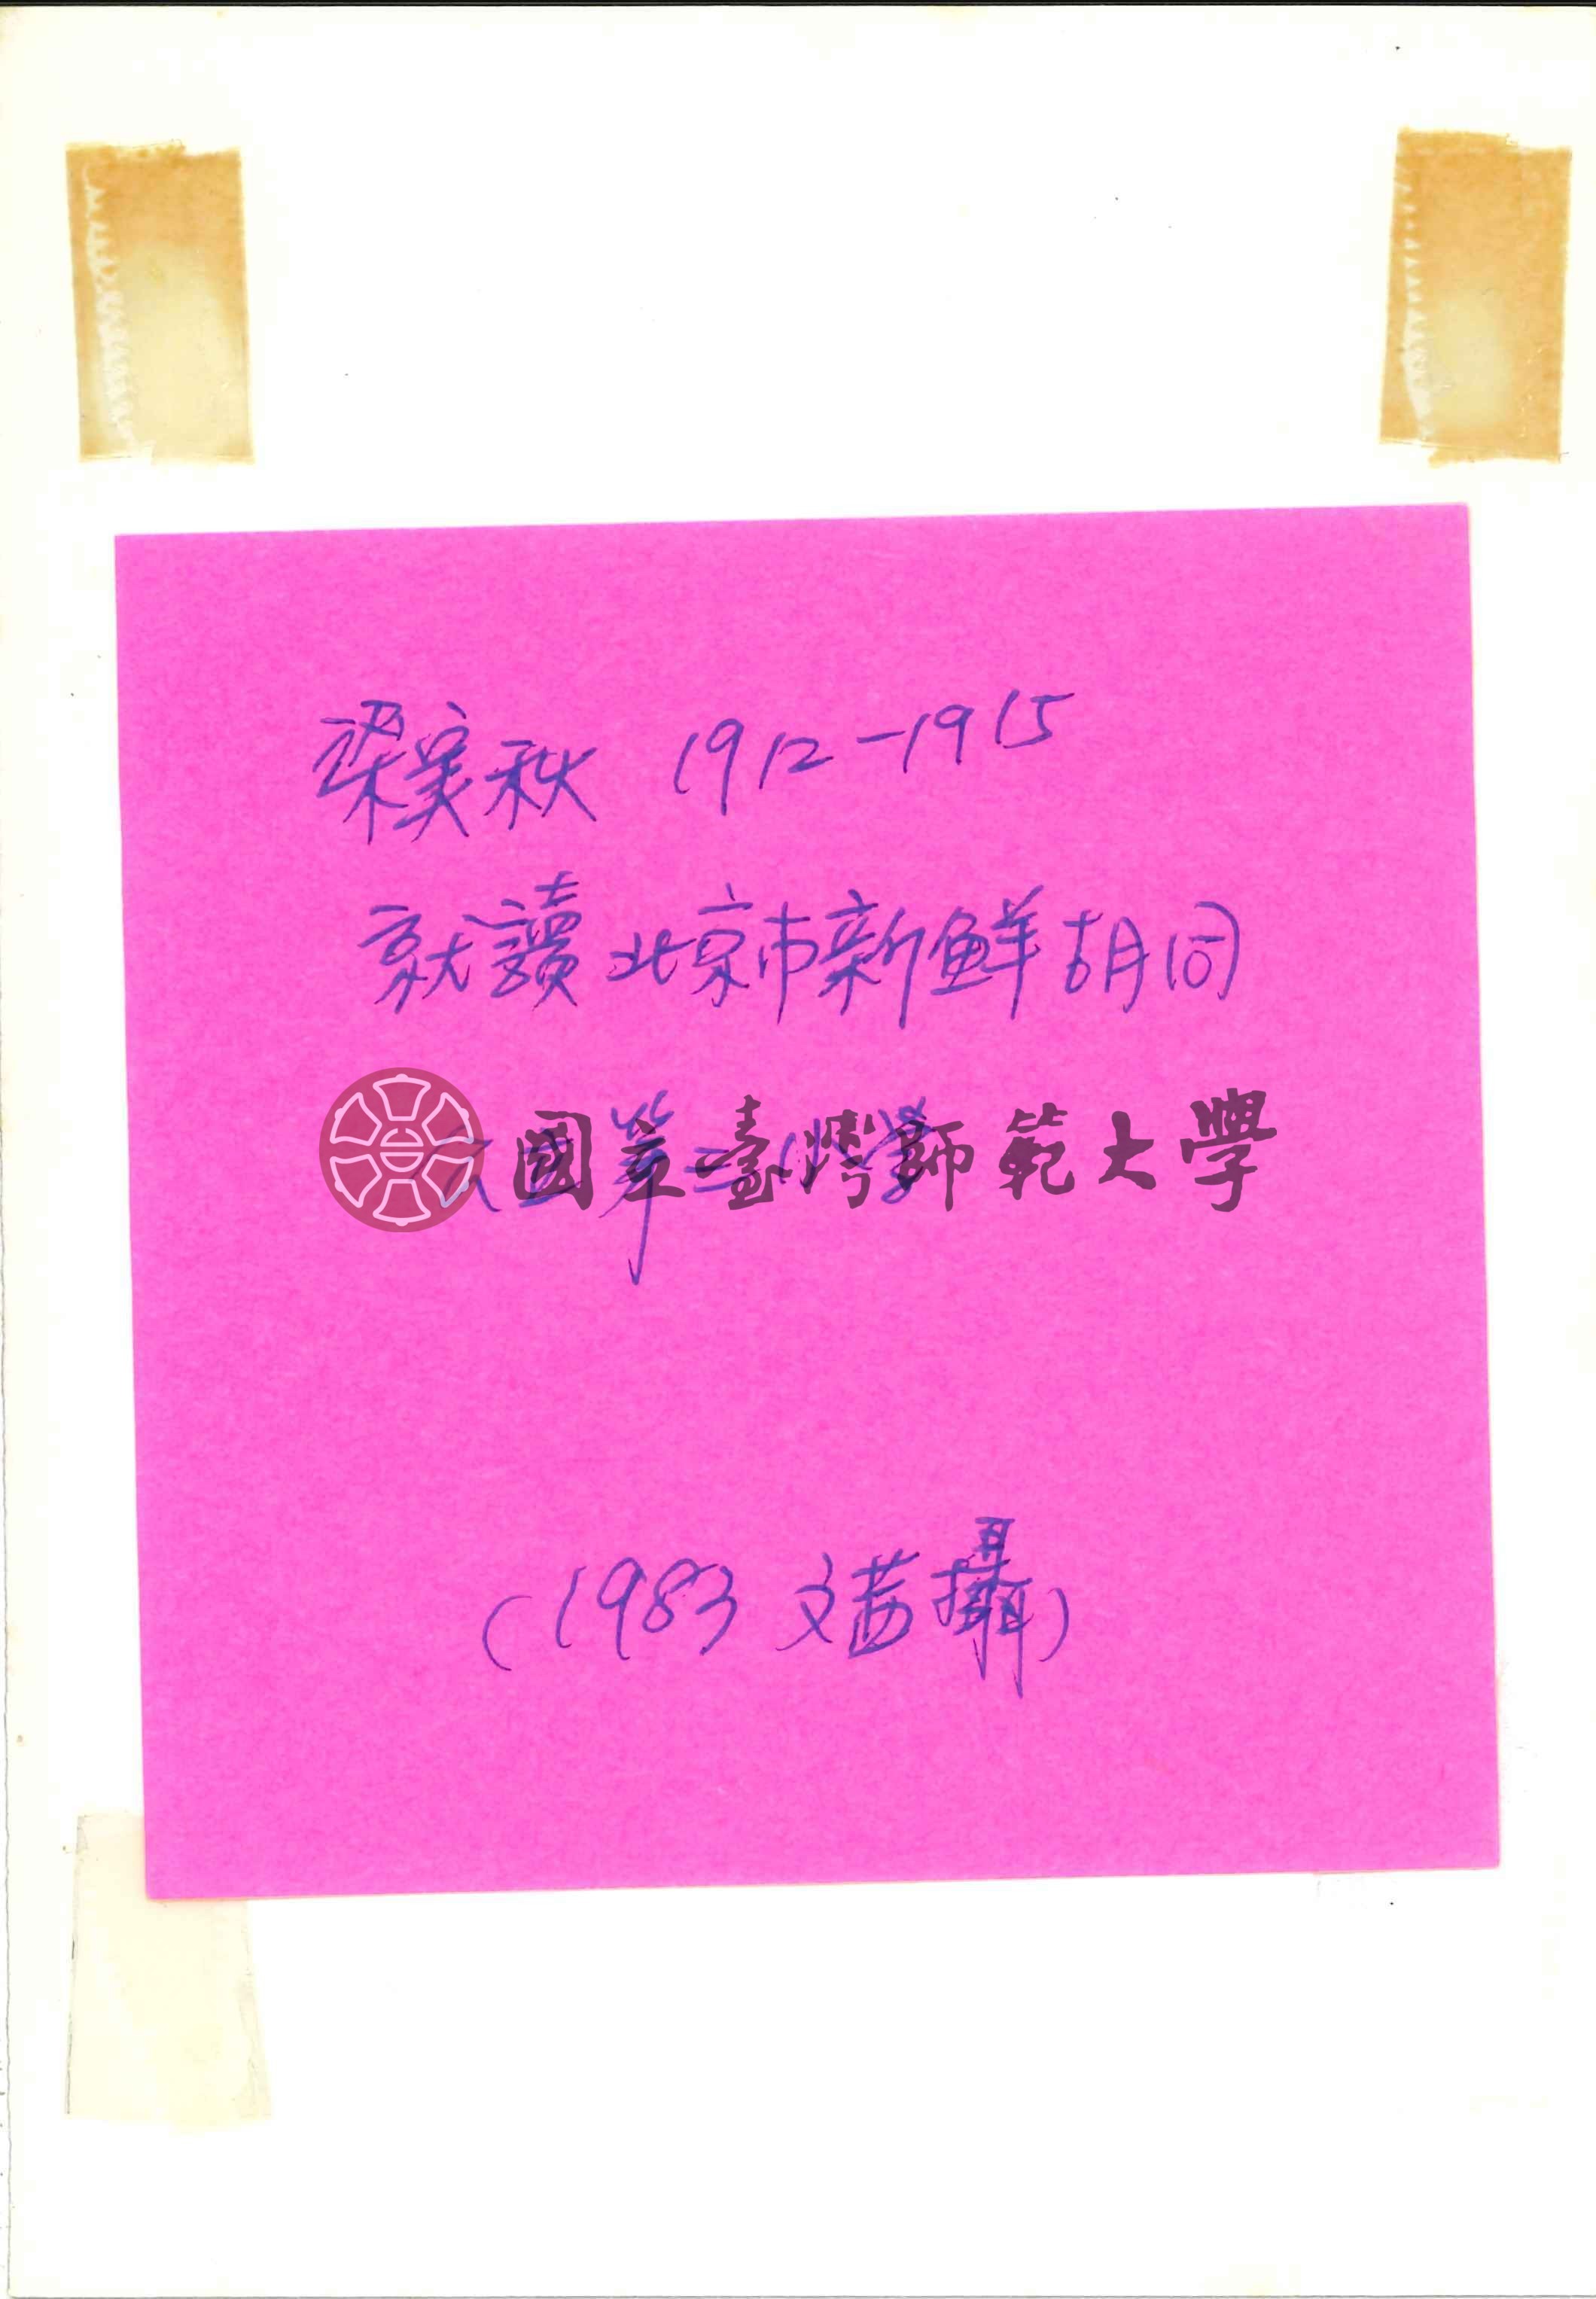 梁實秋 1912-1915
就讀北京市新鮮胡同
公立第三小學
國立臺灣師範大學
(1983 文茜攝)